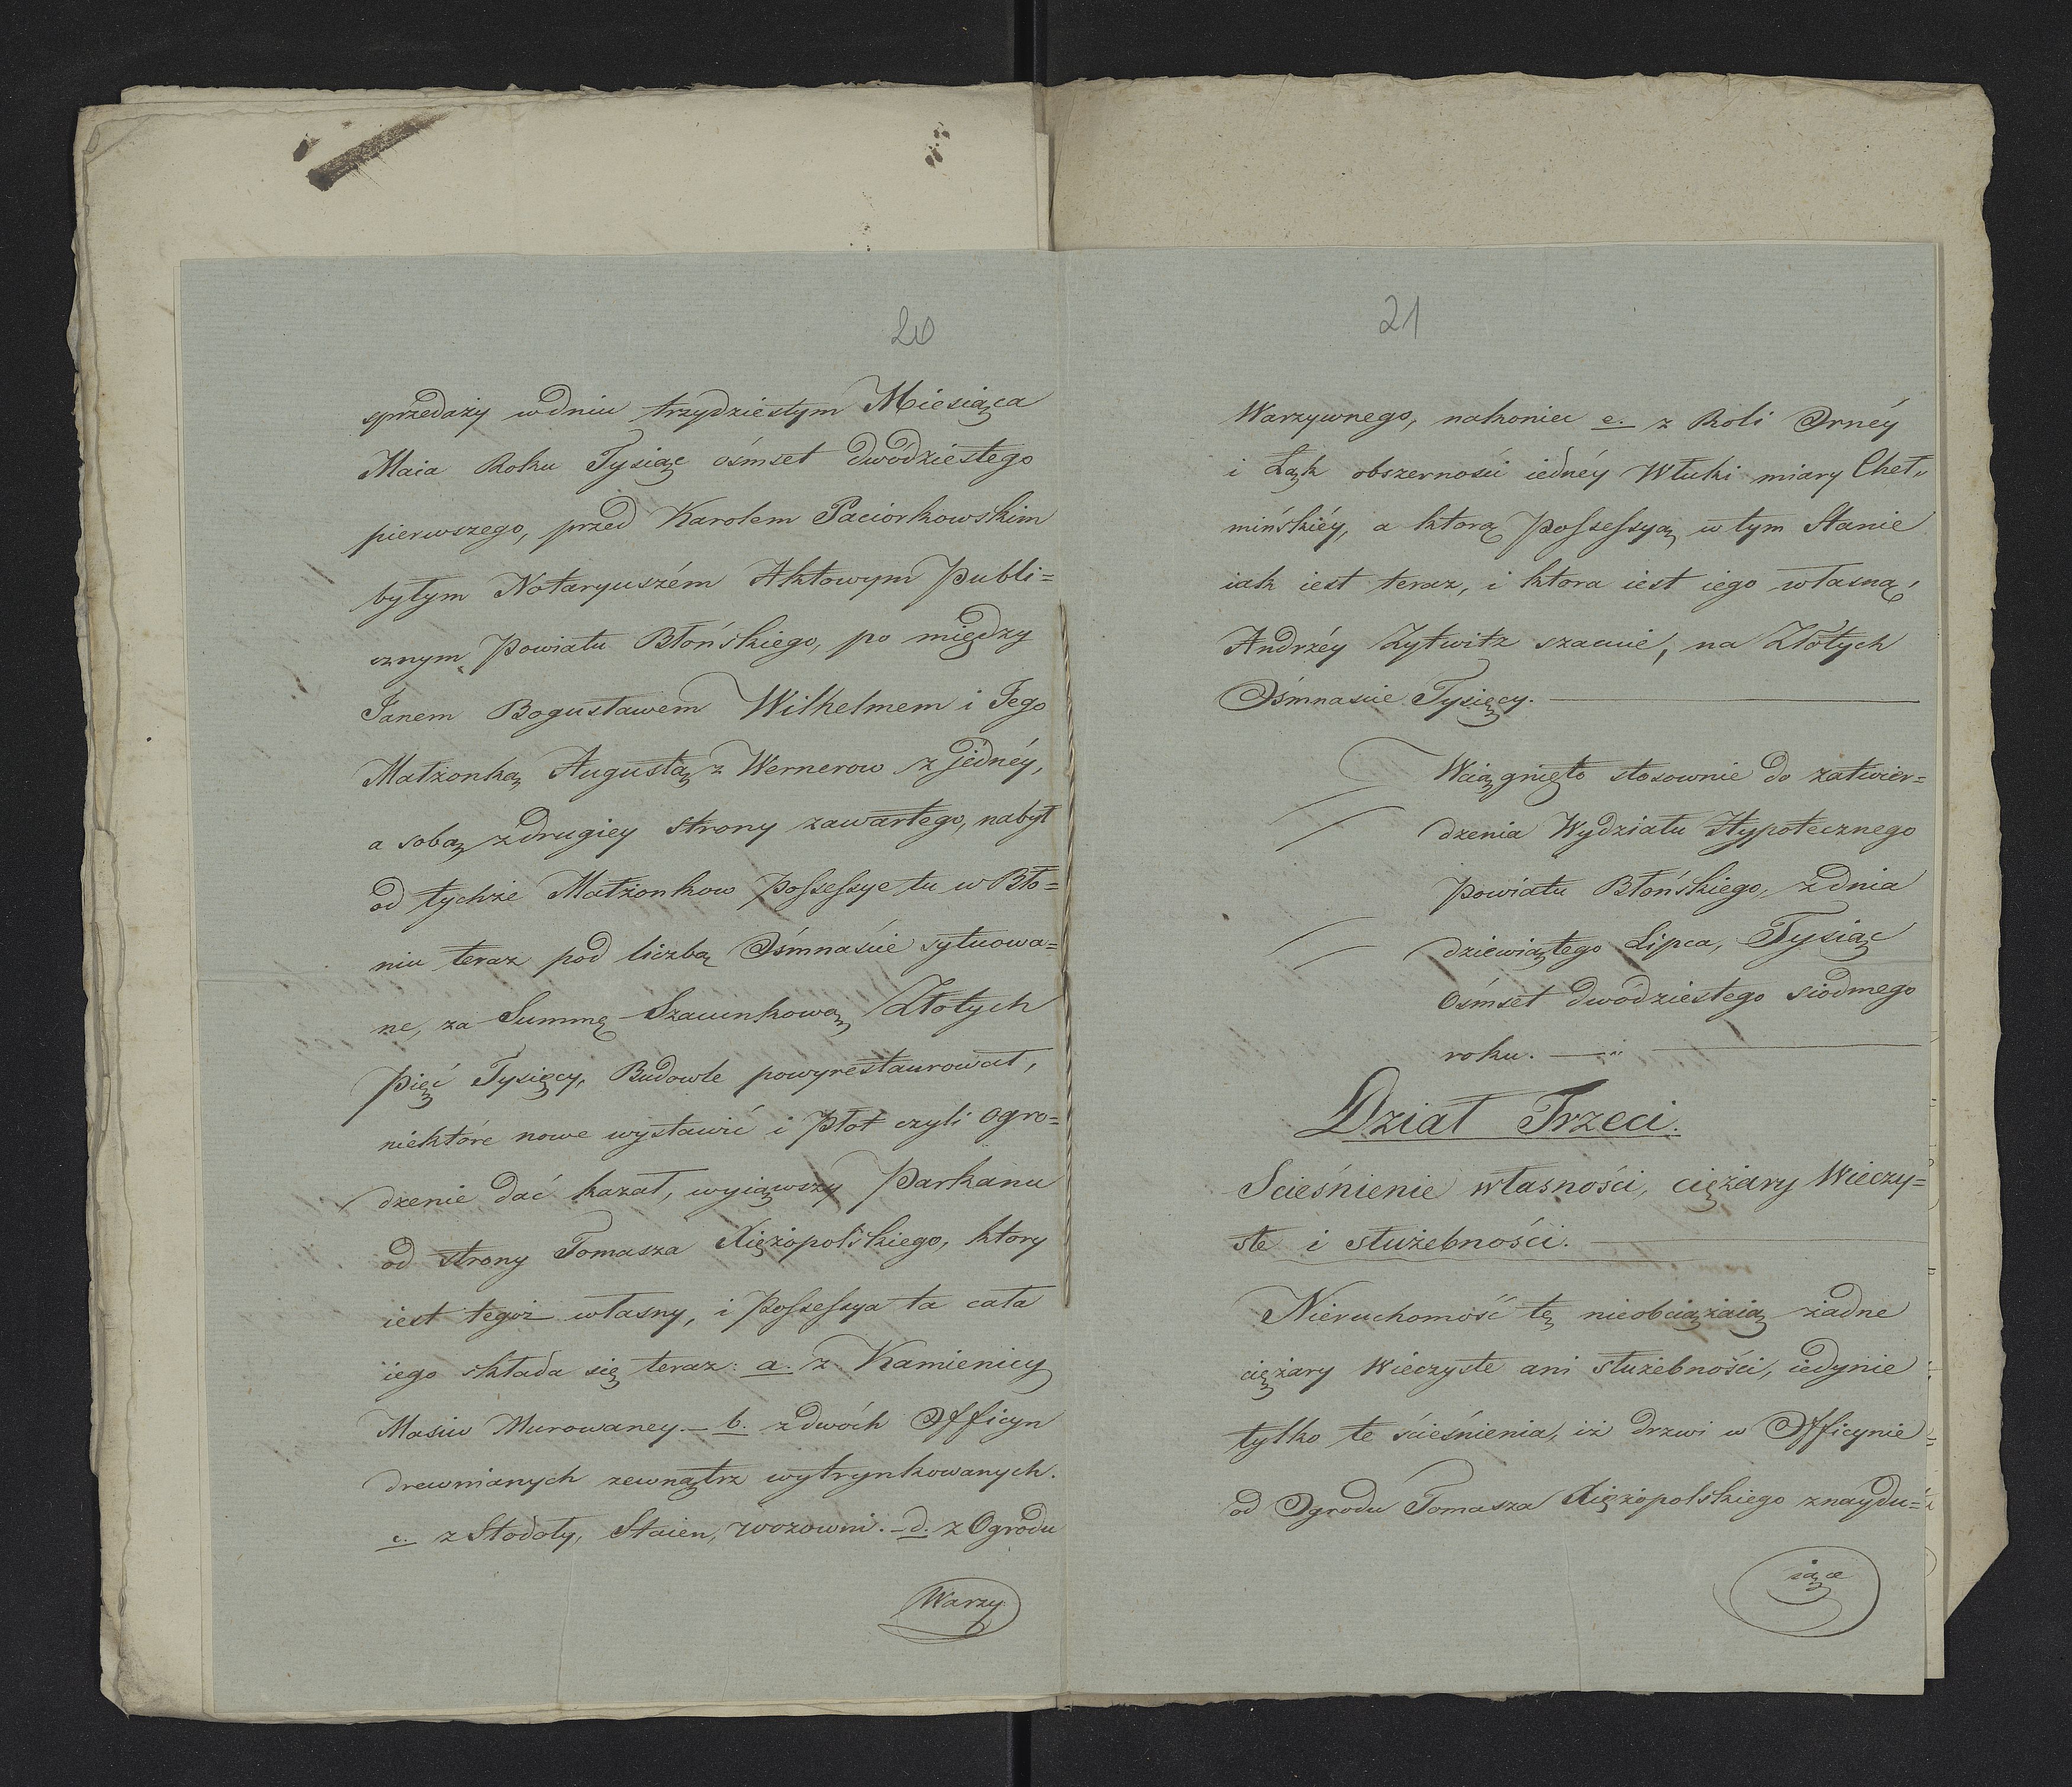 20
sprzedaży w dniu trzydziestym Miesiąca
Maia Roku Tysiąc ośmset dwódziestego
pierwszego, przed Karolem Paciorkowskim
byłym Notaryuszém Aktowym Publi=
cznym Powiatu Błońskiego, po między
Janem Bogusławem Wilhelmem i Jego
Małżonką Augustą z Wernerow z jédnéy,
a sobą z drugiey strony zawartego, nabył
od tychże Małżonkow Possessye tu w Bło=
niu teraz pod liczbą Ośmnaście sytuowa=
ne, za Summę Szacunkową Złotych
Pięć Tysięcy, Budowle powyrestaurował,
niektóre nowe wystawić i Płot czyli ogro=
dzenie dać kazał, wyiąwszy Parkanu
od strony Tomasza Xiężopolskiego, ktory
iest tegoż własny, i Possessya ta cała
iego składa się teraz: a. z Kamienicy
Masiw Murowaney. — b. z dwóch Officyn
drewnianych zewnątrz wytrynkowanych.
c. z Stodoły, Staien, wozowni. — d. z Ogrodu
Warzy
21
Warzywnego, nakoniec e. z Roli Ornéy
i Łąk obszerności iednéy Włuki miary Cheł„
mińskiéy, a ktorą Possessyą w tym Stanie
iak iest teraz, i ktora iest iego własną,
Andrzéy Zytwitz szacuie, na Złotych
Ośmnaście Tysięcy.
Wciągnięto stosownie do zatwier=
dzenia Wydziału Hypotecznego
Powiatu Błońskiego, z dnia
dziewiątego Lipca, Tysiąc
Ośmset dwódziestego siodmego
roku.
Dział Trzeci.
Scieśnienie własności, ciężary Wieczy=
ste i służebności.
Nieruchomość tę nieobciążaią żadne
ciężary Wieczyste ani służebności, iedynie
tylko te ścieśnienia, iż drzwi w Officynie
od Ogrodu Tomasza Xiężopolskiego znaydu=
iące